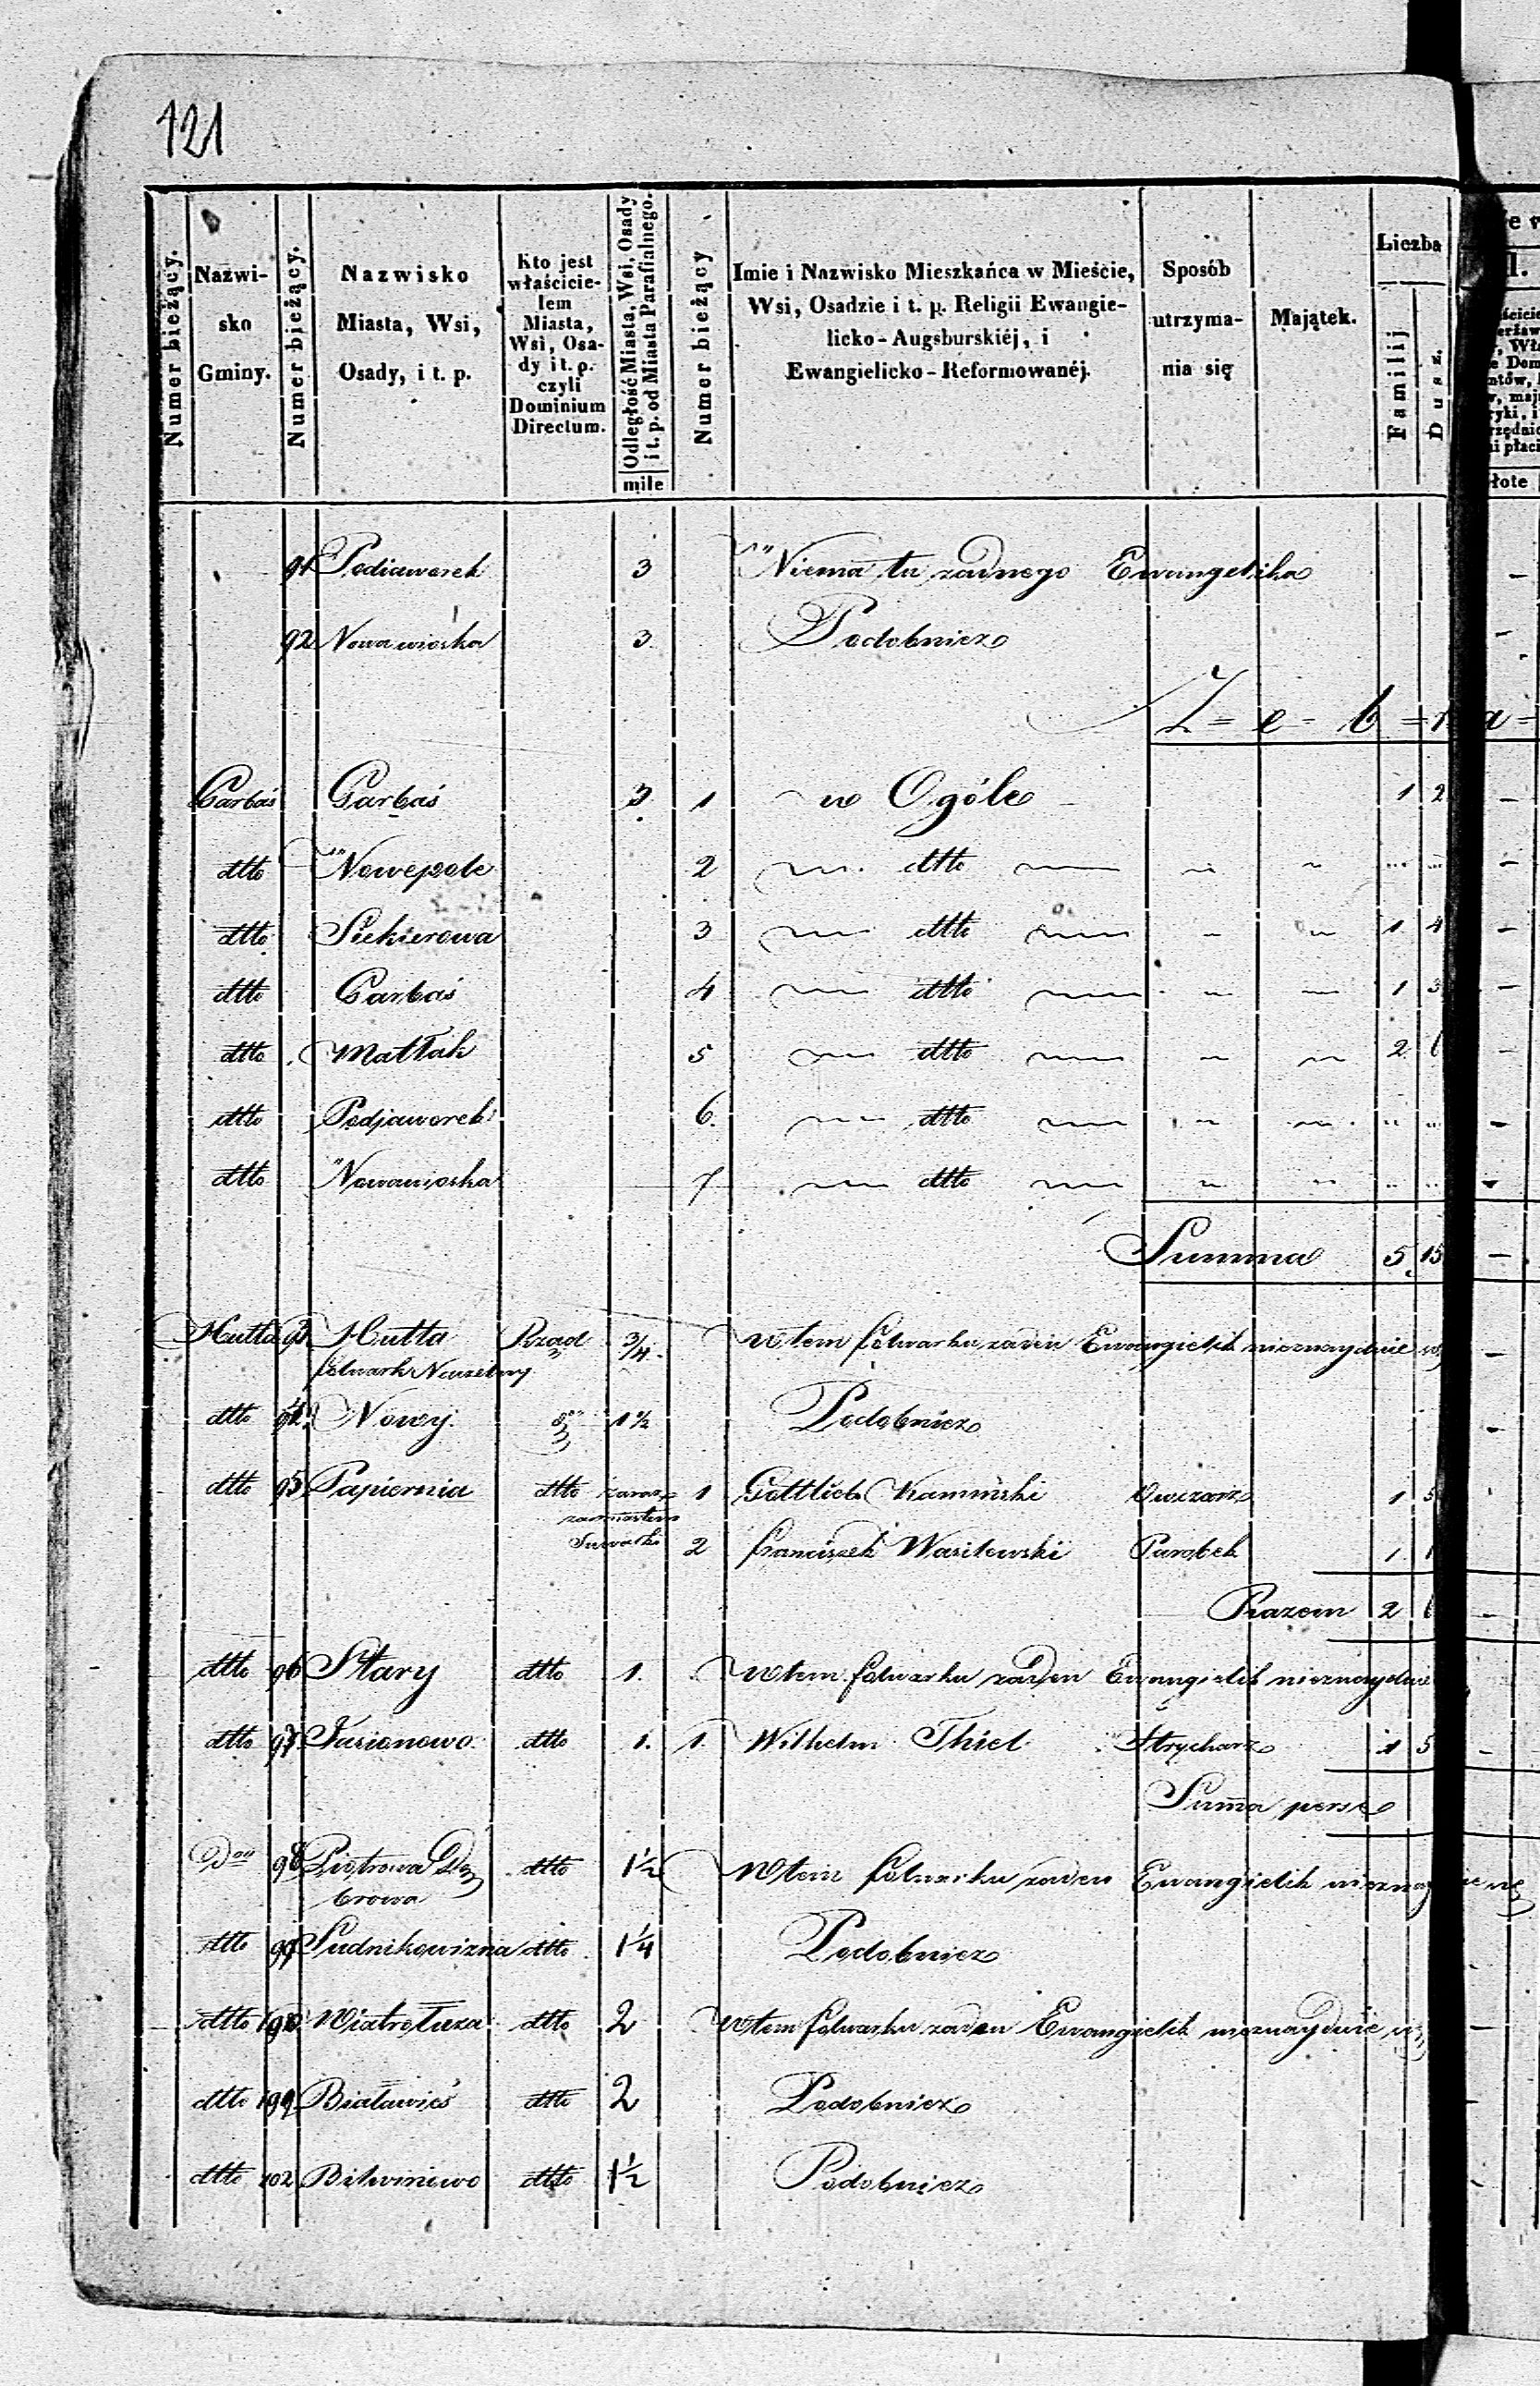 121
Numer bieżący.
Nazwi-
sko
Gminy.
Numer bieżący.
Nazwisko
Miasta, Wsi,
Osady, i t. p.
Kto jest
właścicie-
lem
Miasta,
Wsi, Osa-
dy i t. p.
czyli
Dominium
Directum.
Odległość Miasta, Wsi, Osady
i t. p. od Miasta Parafialnego.
mile
Numer bieżący
Imie i Nazwisko Mieszkańca w Mieście,
Wsi, Osadzie i t. p. Religii Ewangie-
licko-Augsburskiéj, i
Ewangielicko-Reformowanéj.
Sposób
utrzyma-
nia się
Majątek.
Liczba
Familij
Dusz.
91 Podiaworek 3 Niema tu żadnego Ewangelika
92 Nowawioska 3 Podobnież
Z=e=b=r a=
Garbaś Garbaś 3 1 w Ogóle 1 2
dtto Nowepole 2 dtto
dtto Siekierowa 3 dtto 1 4
dtto Garbaś 4 dtto 1 3
dtto Matłak 5 dtto 2 6
dtto Podjaworek 6. dtto
dtto Nowawioska 7 dtto
Summa 5 15
Hutta 93 Hutta Rząd 3/4 W tem folwarku żaden Ewangielik nieznayduie się
folwark Nazewny
dtto 94 Nowy 1 1/2 Podobnież
dtto 95 Papiernia dtto zaraz 1 Gottlieb Kamiński Owczarz 1 5
za miastem
Suwałki 2 Franciszek Wasilewski Parobek 1 1
Razem 2 6
dtto 96 Stary dtto 1. W tem folwarku żaden Ewangielik nieznayduie
dtto 97. Jasionowo dtto 1. 1. Wilhelm Thiel Strycharz 1 5
Summa perse
98 Piotrowa Dą dtto 1 1/2 W tem folwarku żaden Ewangielik nieznayduie się
browa
dtto 99 Sudnikowizna dtto 1 1/4 Podobnież
dtto Wiatrołuza dtto 2 W tem folwarku żaden Ewangielik nieznayduie się
dtto Białawieś dtto 2 Podobnież
dtto 102 Bitwiniewo dtto 1 1/2 Podobnież